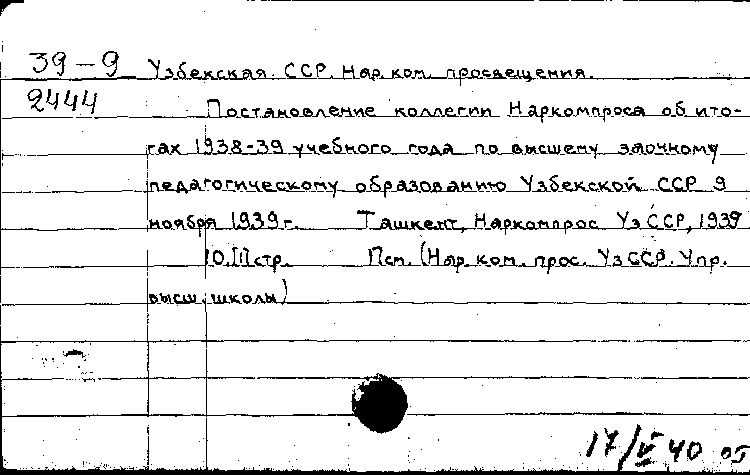 39-9 Узбекская ССР. Нар. ком. просвещения.
2444 Постановление коллегии Наркомпроса об ито-
гах 1938-39 учебного года по высшему заочному
педагогическому образованию Узбекской ССР 9
ноября 1939 г. Ташкент, Наркомпрос УзССР, 1939
10.III стр. Псм. (Нар. ком. прос. УзССР. Упр.
высш. школы)
17/V 40